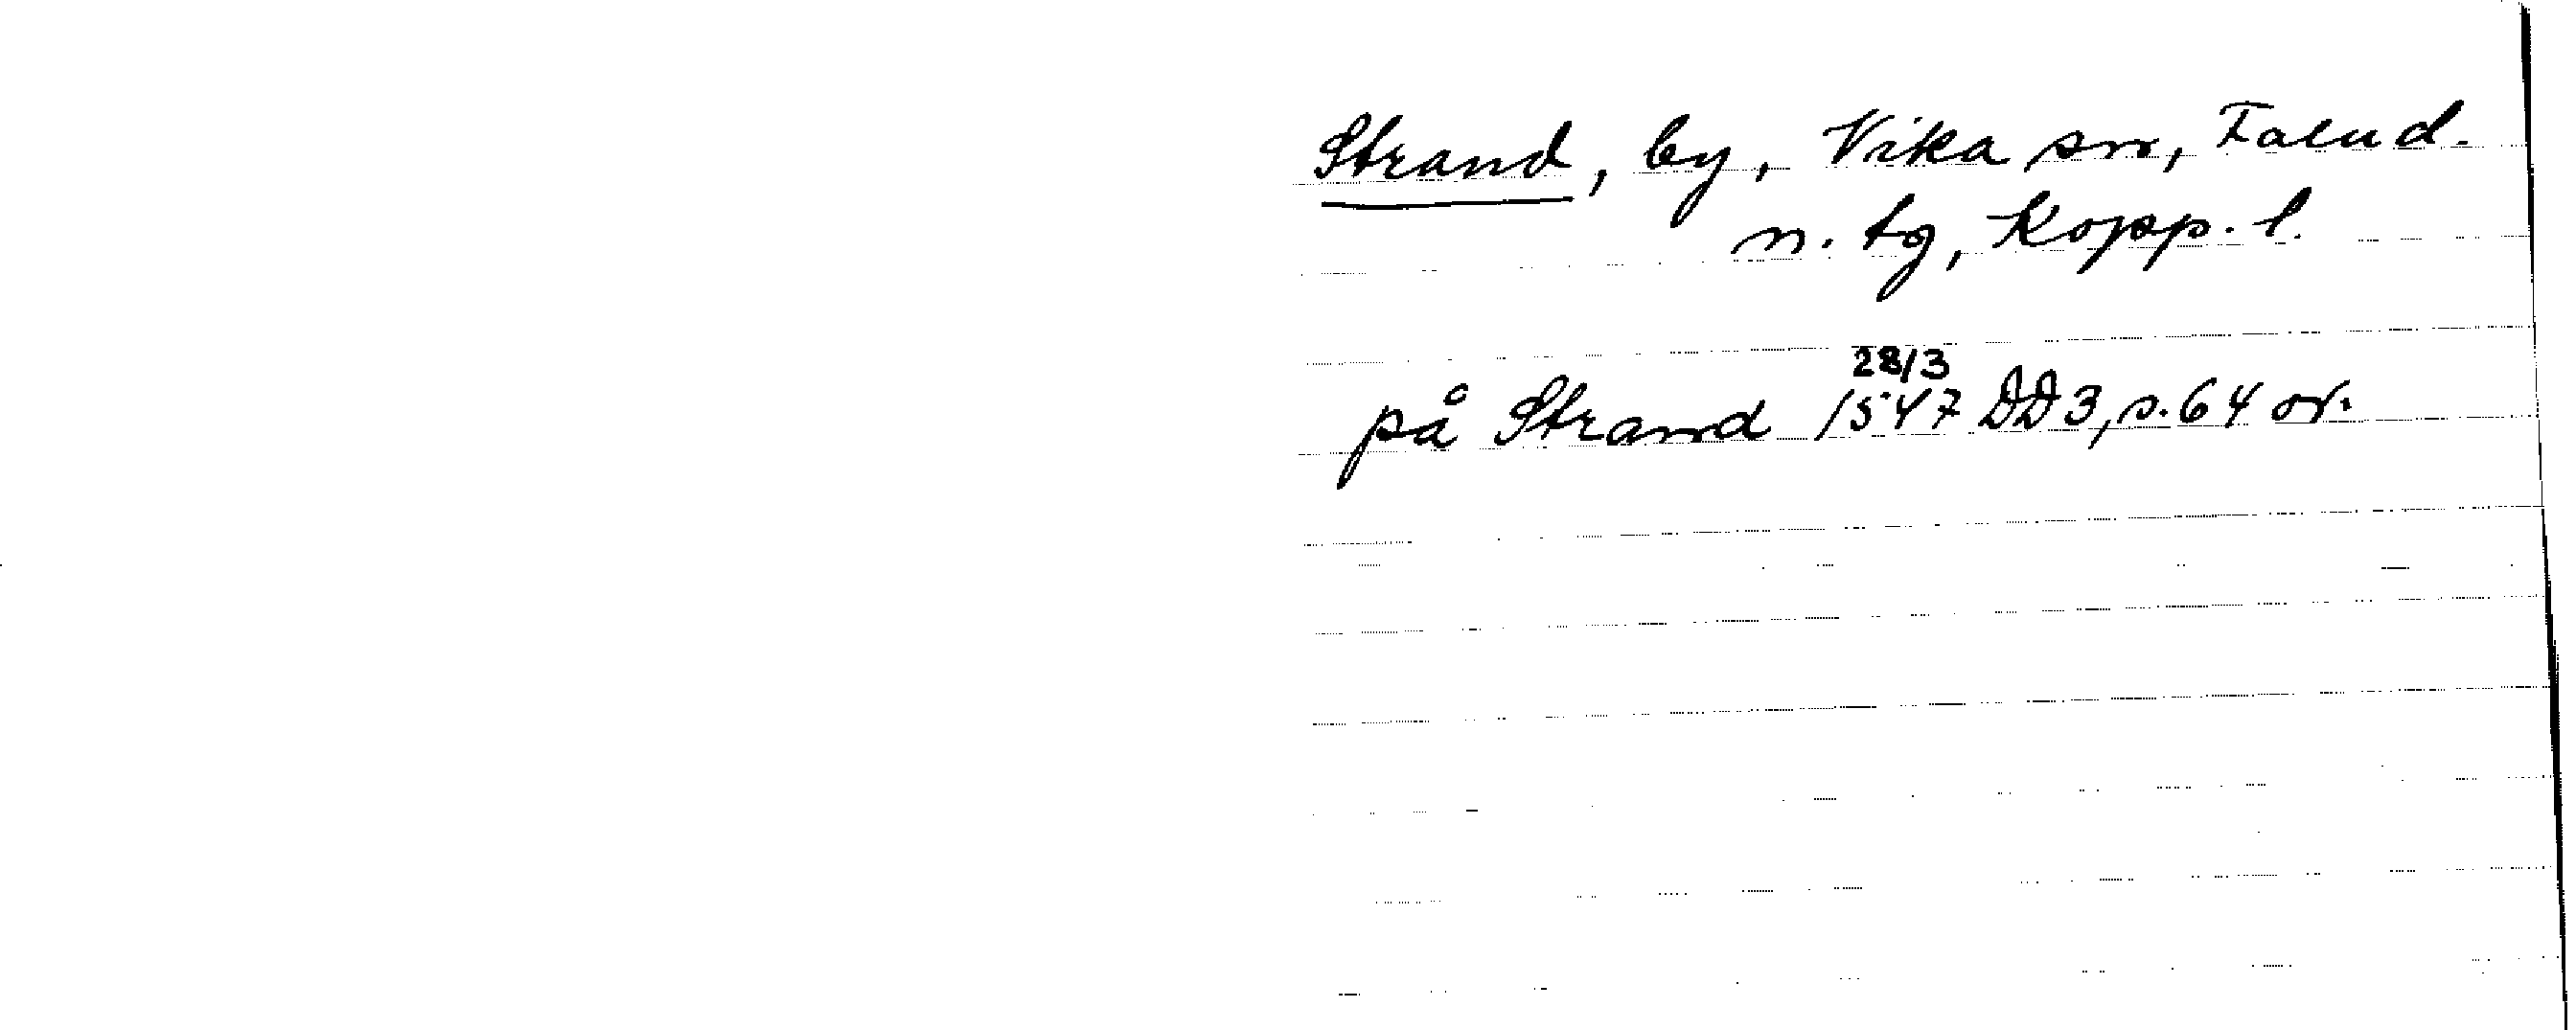 Strand, by, Vika sn, Falu d.
n. tg, Kopp. l.
28/3
på Strand 1547 DD3, s. 64 or.